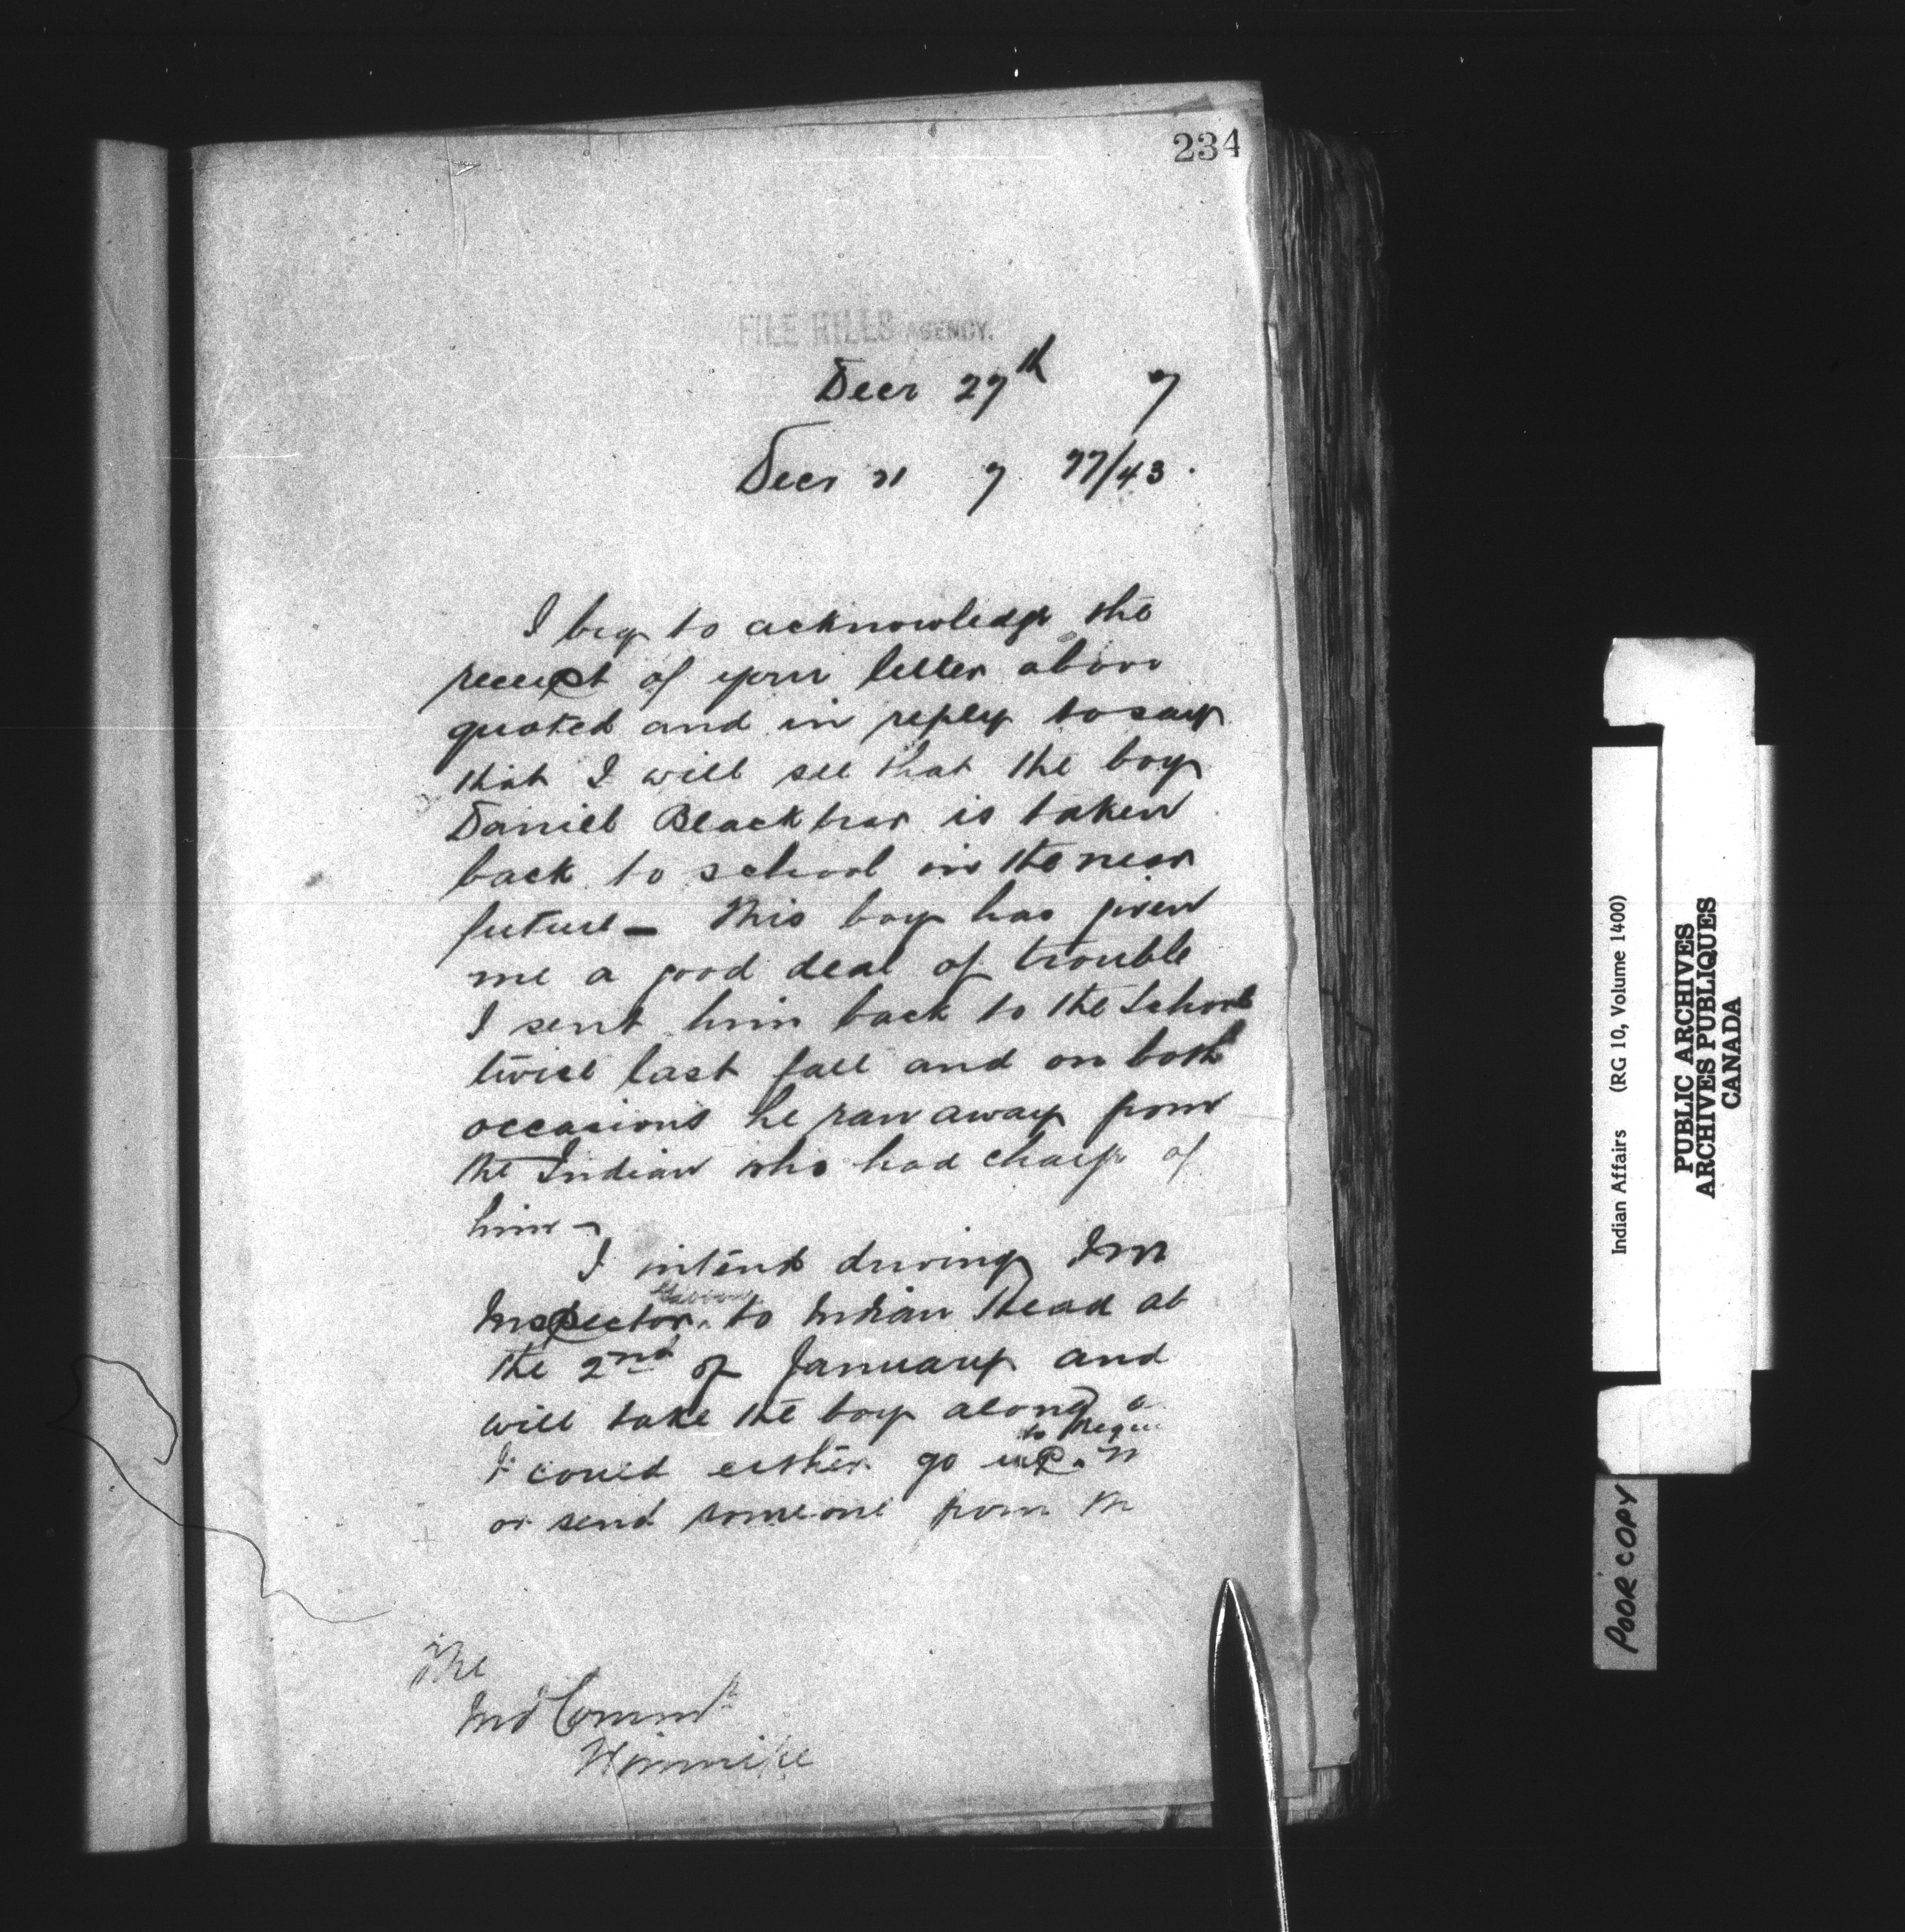 234
FILE HILLS AGENCY.
Decr 27th 7
Decr 21 7 77/43.
I beg to acknowledge the
receipt of your letter above
quoted and in reply to say
that I will see that the boy
Daniel Blackbear is taken
back to school in the near
future – This boy has given
me a good deal of trouble
I sent him back to the School
twice last fall and on both
occasions he ran away from
the Indian who had charge of
him –
I intend driving
Inspector to Indian Head at
the 2nd of January and
will take the boy along
to Regi
I could either go up
or send someone from
The
Ind Commr
Winnipeg
Indian Affairs (RG 10, Volume 1400)
PUBLIC ARCHIVES
ARCHIVES PUBLIQUES
CANADA
POOR COPY